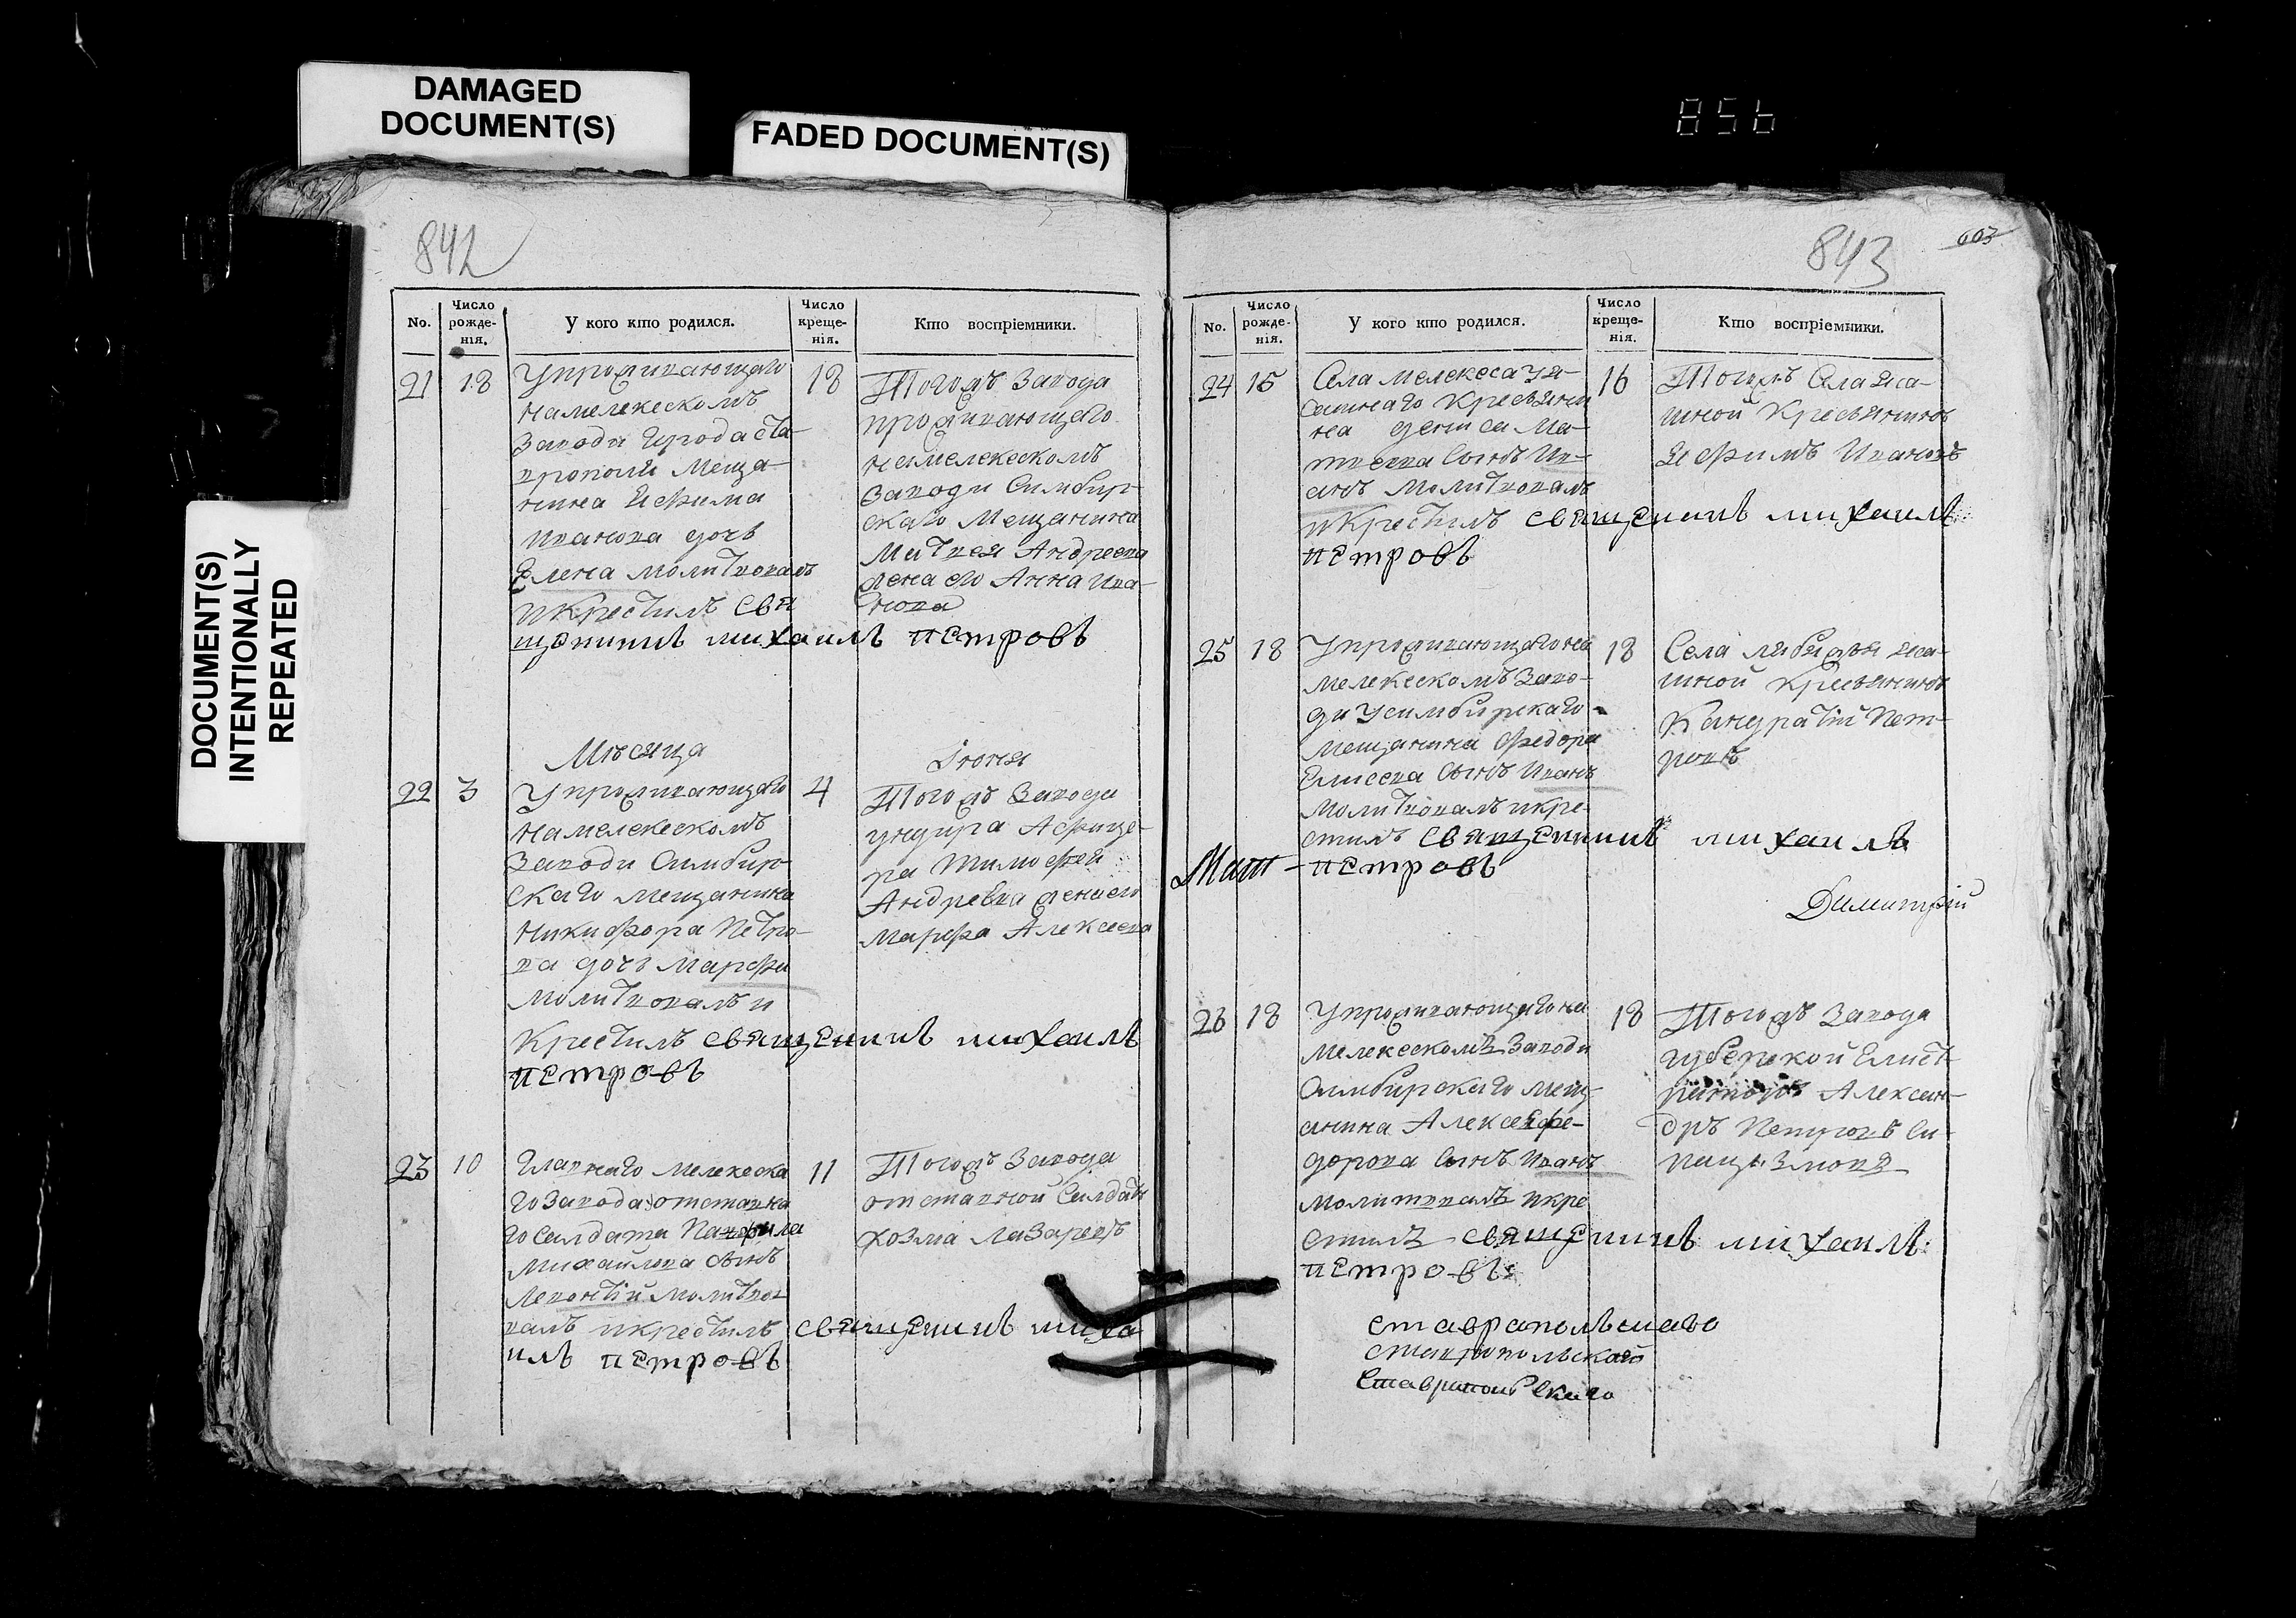 DAMAGED
DOCUMENT(S)
FADED DOCUMENT(S)
856
DOCUMENT(S)
INTENTIONALLY
REPEATED
842
No.
Число рожде-нія.
У кого кто родился.
Число креще-нія.
Кто воспріемники.
21
18
Упроживающаго
намелекескомъ
заводи города ста-
врополи Меща-
нина Ефима
иванова дочь
Елена молитвовалъ
икрестилъ свя
щенникъ михаилъ петровъ
18
Тогожъ завода
проживающаго
намелекескомъ
заводи Симбир-
скаго Мещанина
Матвея Андреева
жена его Анна Ива-
нова
Мѣсяца
Іюня
22
3
Упроживающаго
намелекескомъ
Заводи Симбир-
скаго мещанина
Никифора Петро-
ва дочь Марфа
молитвовалъ и
крестилъ священникъ михаилъ
петровъ
4
Тогожъ Завода
ундира Афице-
ра Тимофей
Андрева женаего
Марфа Алексеева
23
10
Главнаго Мелекеска
го Завода отставна
го Салдата Панфила
Михайлова сынъ
Леонтій молитво
валъ икрестилъ священникъ миха
илъ петровъ
11
Тогожъ Завода
отставной Салдатъ
Козма Лазаревъ
843
603
No.
Число рожде-нія.
У кого кто родился.
Число креще-нія.
Кто воспріемники.
24
15
Села мелекеса уя-
сашнаго Кресьяни
на дениса Ма-
твеева сынъ Ив-
анъ молитвовалъ
икрестилъ священникъ михаилъ
петровъ
16
Тогожъ Села яса-
шной Кресьянинъ
Ефимъ Ивановъ
25
18
Упроживающагона
мелекескомъ Заво-
ди усимбирскаго
мещанина Федора
Елисеева сынъ Иванъ
молитвовалъ икре-
стилъ священникъ михаилъ
петровъ
18
Села лебяжья яса-
шной кресьянинъ
Кандратій Пет-
ровъ
Димитрій
26
18
Упроживающагона
мелекескомъ Заводи
Симбирскаго мещ-
анина Алексея фе-
дорова сынъ Иванъ
молитвовалъ икре
стилъ священникъ михаилъ
петровъ
18
Тогожъ Завода
Алексан-
дръ Петровъ
ставрапольскаго
ставропольскаго
Ставропольскаго